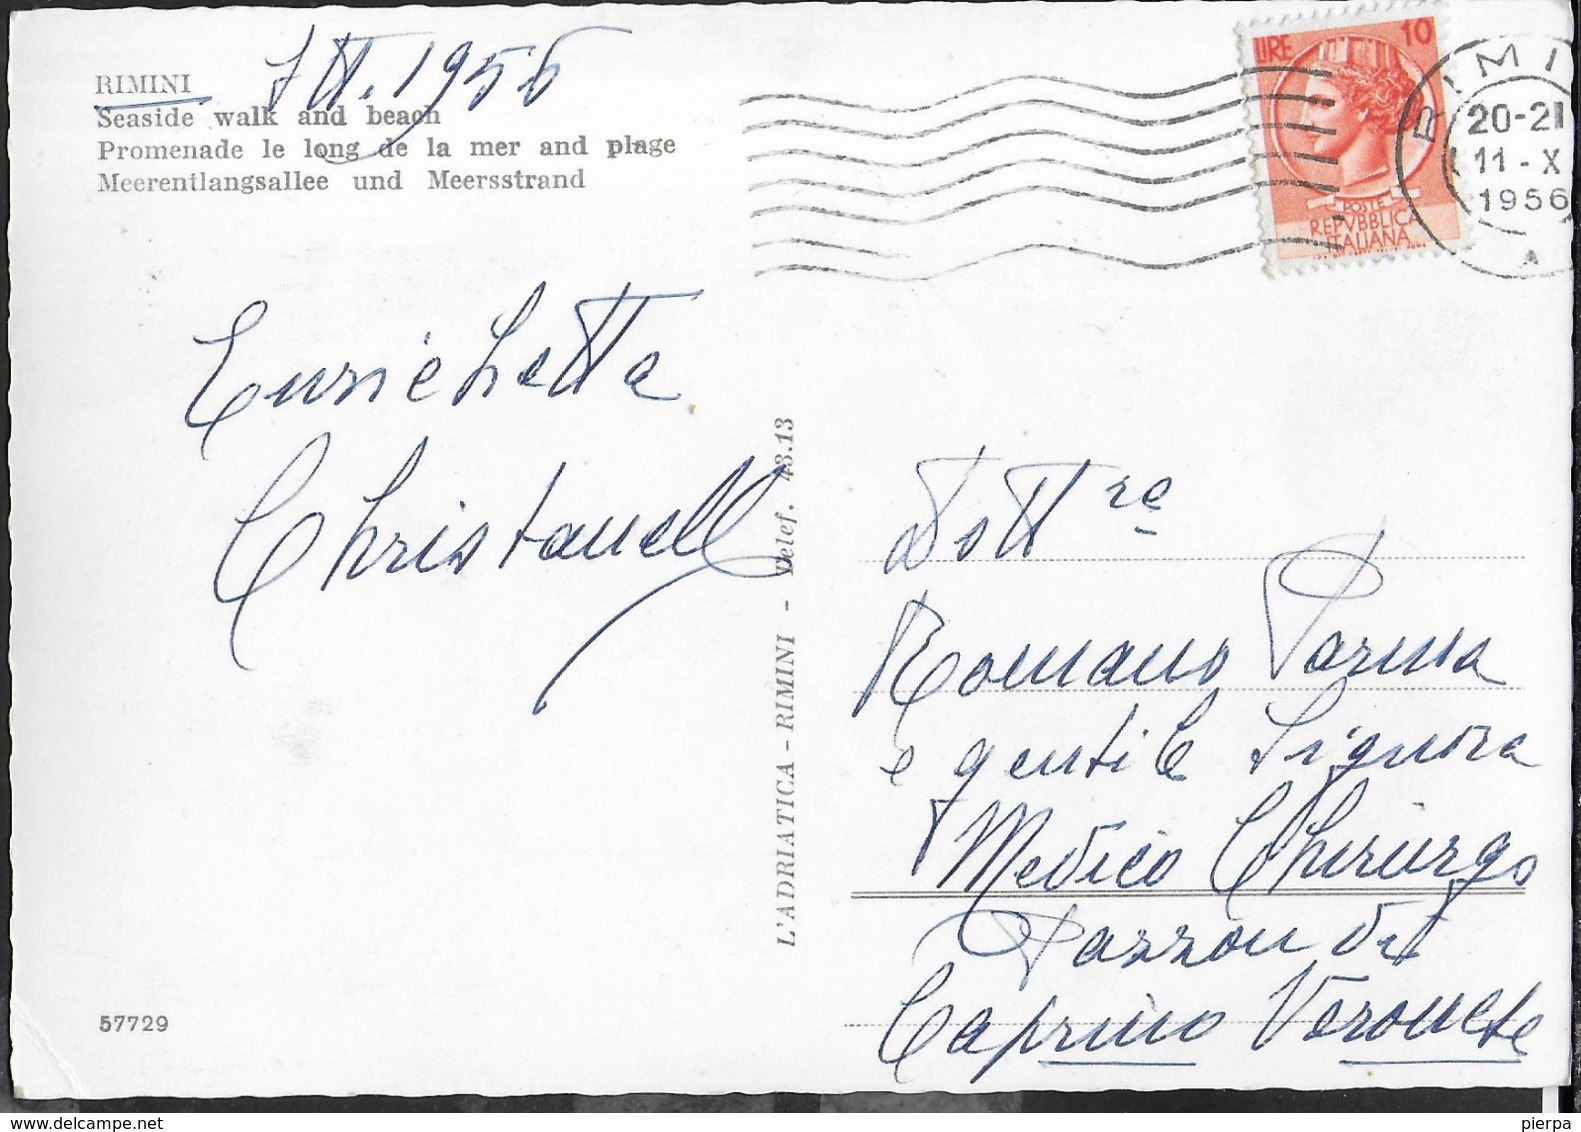 RIMINI
Seaside walk and beach
Promenade le long de la mer and plage
Meerentlangsallee und Meersstrand
1956
LIRE 10
POSTE
REPVBBLICA
ITALIANA
RIMI
20-21
11-X
1956
A
Enrichetta
Christanell
L'ADRIATICA - RIMINI - Telef. 43.13
Dott re
Romano Parma
e gentile Signora
Medico Chirurgo
Pazzon di
Caprino Veronese
57729
pierpa